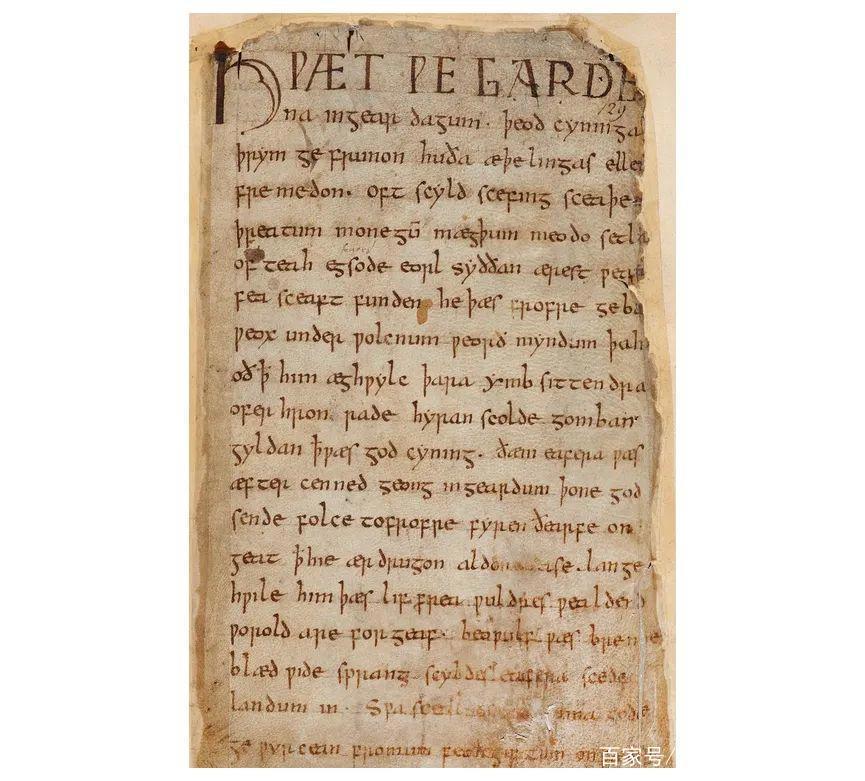 HǷÆT ǷE GARDE
129
na ingear dagum. þeod cyninga
þrym ge frunon huða æþelingas elle
fremedon. oft scyld scefing sceaþe
þreatum monegū mægþum meodo setla
of teah egsode eorl syððan ærest ƿear
fea sceaft funden he þæs frofre geba
ƿeox under ƿolcnum ƿeorð myndum þah
oð ꝥ him æghƿylc þara ymb sittendra
ofer hron rade hyran scolde gomban
gyldan ꝥ ƿæs god cyning. ðæm eafera ƿæs
æfter cenned geong ingeardum þone god
sende folce tofrofre fyren ðearfe on
geat ꝥ hie ær drugon aldo ase. lange
hƿile him þæs lif frea ƿuldres ƿealdend
ƿorold are for geaf. beoƿulf ƿæs breme
blæd ƿide sprang scyldes eafera scede
landum in. Sƿa sceal guma gode
ge ƿyrcean fromum feoh giftum on
百家号/